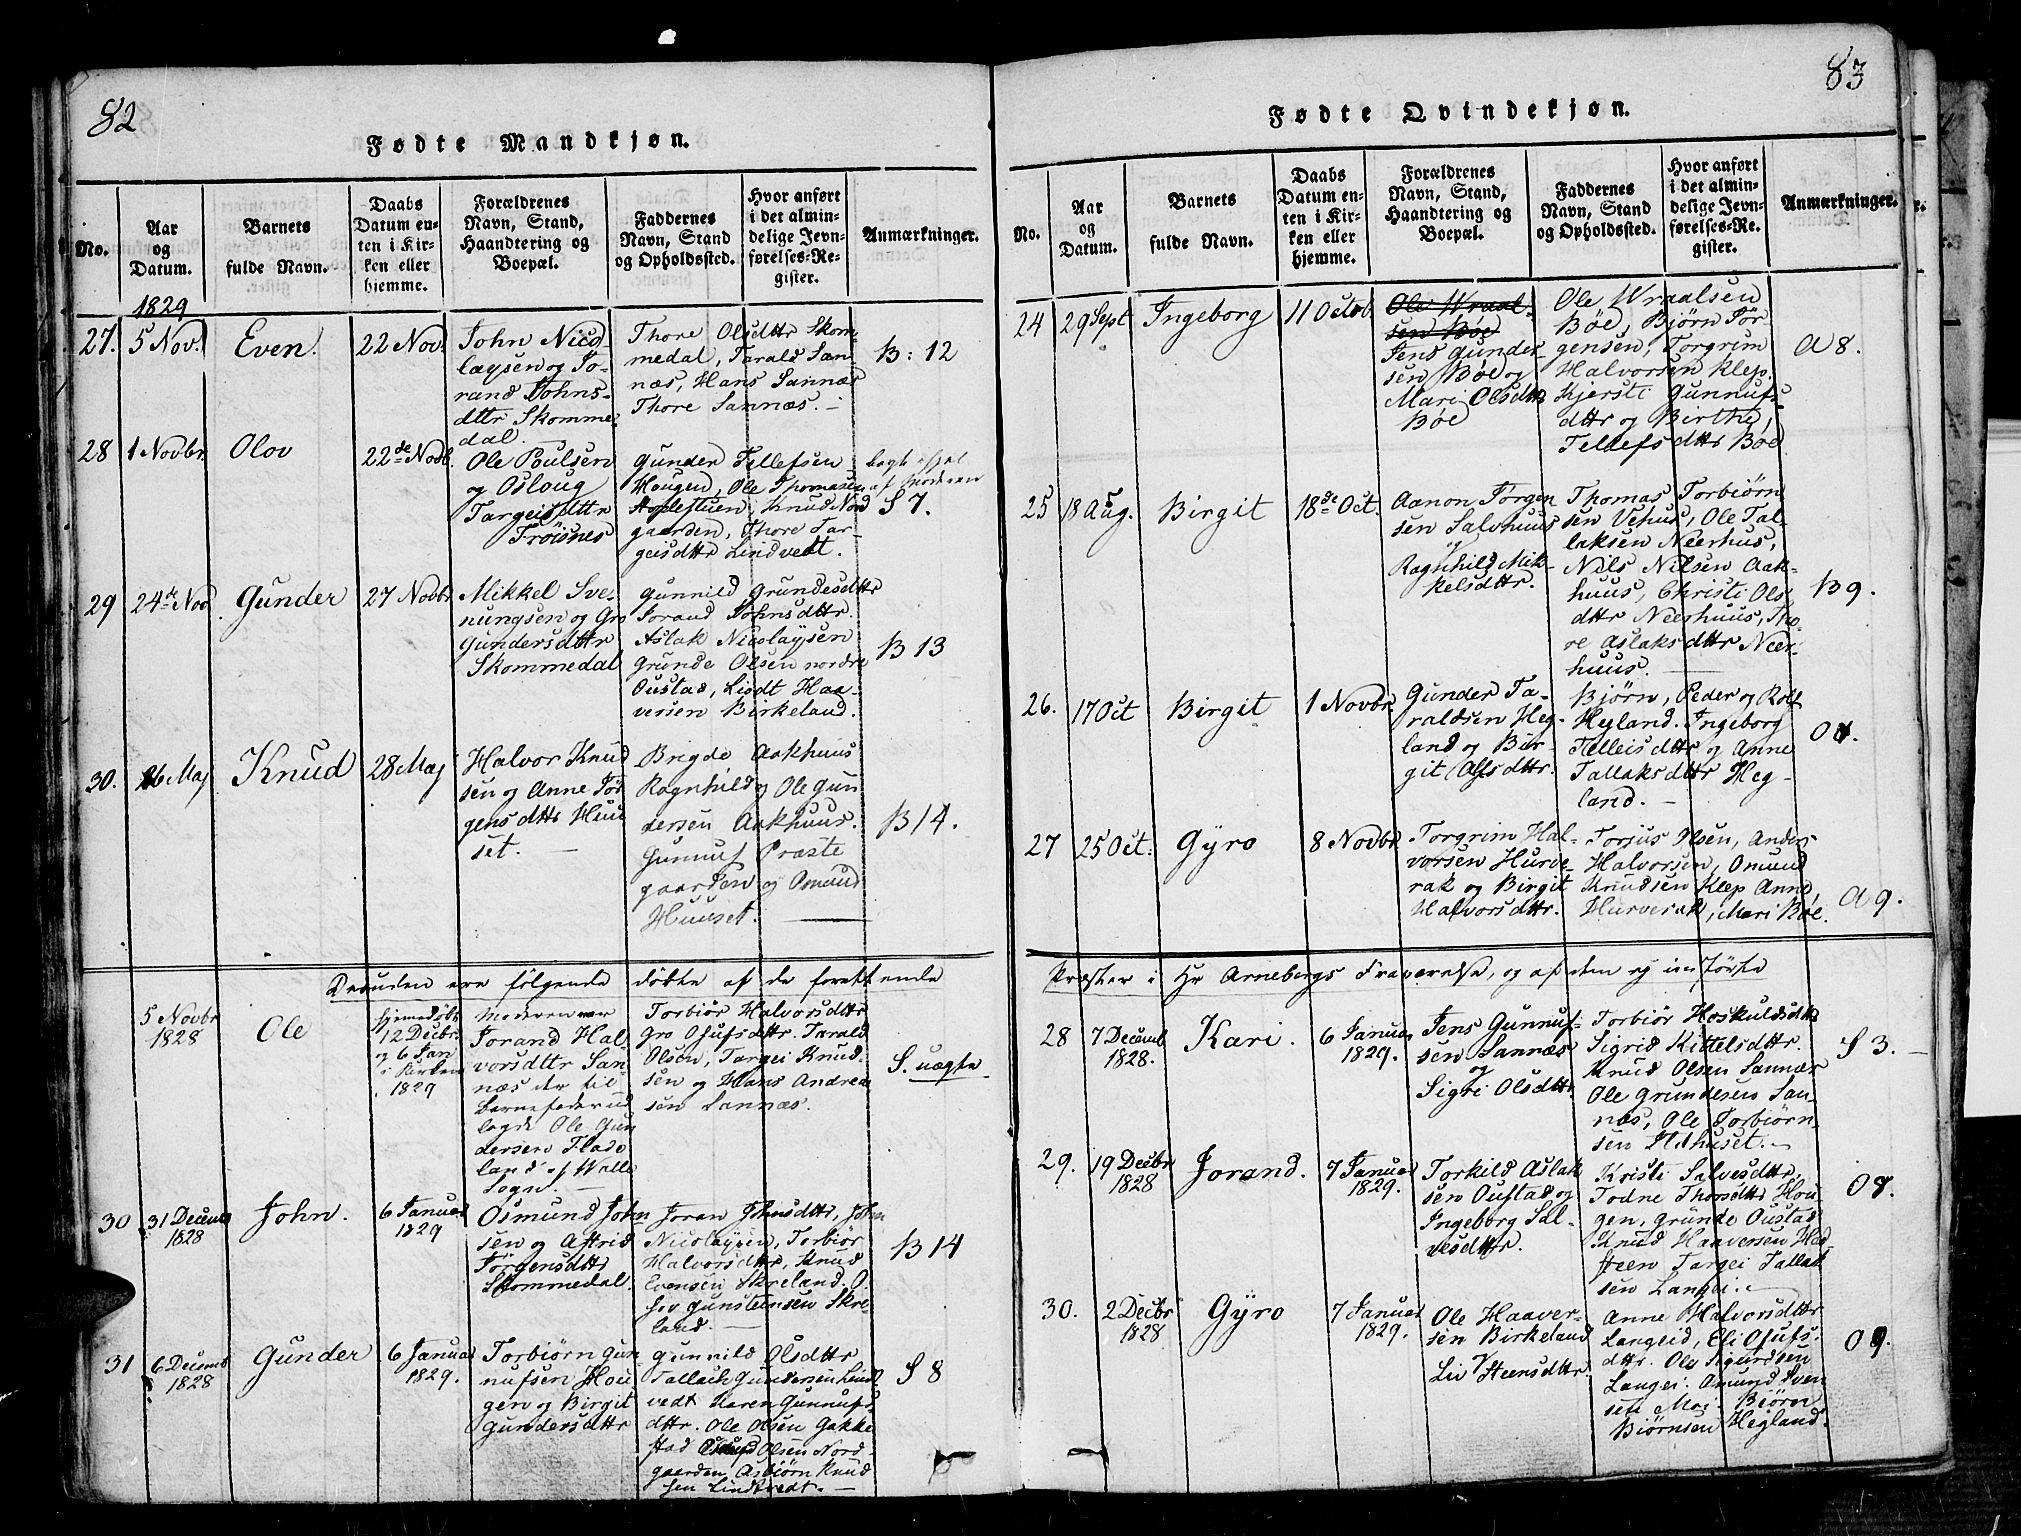 82
Fødte Mandkjøn.
No.
Aar
og
Datum.
Barnets
fulde Navn.
Daabs
Datum en-
ten i Kir-
ken eller
hjemme.
Forældrenes
Navn, Stand,
Haandtering og
Boepæl.
Faddernes
Navn, Stand
og Opholdssted.
Hvor anført
i det almin-
delige Jevn-
førelses-Re-
gister.
Anmærkninger.
1829
27.
5 Nov.
Even.
22 Nov.
John Nico-
laysen og Jo-
rand Johns-
dttr Skomme-
dal.
Thore Olsdttr Skom-
medal, Tarald San-
næs, Hans Sannæs
Thore Sannæs. -
B: 12
28
1 Novbr.
Olov
22de Novb.
Ole Poulsen
og Osloug
Targeisdttr
Frøisnes
Gunder Tellefsen
Hougen, Ole Thomasen
Knud Nord
gaarden, Thore Tar-
geisdttr Lindvedt.
af Moderen
S 7.
29
24de Nov.
Gunder
27 Novbr
Mikkel Sve-
nungsen og Gro
Gundersdttr
Skommedal
Gunnild Grundesdttr
Jorand Johnsdttr.
Aslak Nicolaysen
Grunde Olsen nordre
Oustad, Liødt Haa-
versen Birkeland.
B 13
30.
26 Maj
Knud
28 Maj
Halvor Knud
sen og Anne Jør
gensdttr Huu
set. -
Brigde Aakhuus
Ragnhild og Ole Gun
dersen Aakhuus.
Gunnuf Præste
gaarden og Omund
Huuset. -
B 14.
Desuden ere følgende døbte af de forettende
5 Novbr
1828
Ole
hjemedøbt
12 Decbr.
og 6 Jan
i Kirken
1829
Moderen var
Jorand Hal
vorsdttr San-
næs der til
Barnefader ud
lagde Ole Gun
dersen Flade
land af Walle
Sogn. -
Torbiør Halvorsdttr
Gro Osufsdttr. Tarald
Olsen, Targei Knud-
sen og Hans Andrea
sen Sannæs.
S. uægte
30
31 Decemb
1828
John.
6 Januar
1829
Osmund John
sen og Astrid
Jørgensdttr
Skommedal.
Joran Johnsdttr, John
Nicolaysen, Torbiør
Halvorsdttr, Knud
Evensen Skreland. O.
sov Gunsteensen Skre
land. -
B 14
31
6 Decemb
1828
Gunder
6 Januar
1829.
Torbiørn Gun
nufsen Hou
gen og Birgit
Gundersdttr
Gunnild Olsdttr
Tallach Gundersen Lind
vedt Karen Gunnufs
dttr. Ole Olsen Gakke
stad Olsen Nord-
gaarden, Asbiørn Knud
sen Lindtvedt. -
S 8
83
Fødte Qvindekjøn.
No.
Aar
og
Datum.
Barnets
fulde Navn.
Daabs
Datum en-
ten i Kir-
ken eller
hjemme.
Forældrenes
Navn, Stand,
Haandtering og
Boepæl.
Faddernes
Navn, Stand
og Opholdssted.
Hvor anført
i det almin-
delige Jevn-
førelses-Re-
gister.
Anmærkninger.
24
29 Sept
Ingeborg
11 Octob.
Ole Wraal-
sen Boe
Jens Gunder-
sen Bøe og
Mari Olsdttr
Bøe
Ole Wraalsen
Bøe, Bjørn Jør-
gensen, Torgrim
Halvorsen Klep.
Kjersti Gunnufs-
dttr og Birthe,
Tellefsdttr Bøe
A 8.
25
18 Aug.
Birgit
18de Oct.
Aanon Jørgen
sen Salvhuus
og
Ragnhild Mik-
kelsdttr.
Thomas Torbiørn-
sen Vehus, Ole Tal-
laksen Neerhus,
Nils Nilsen Aak-
huus, Christi Ols-
dttr Neerhuus, Tho-
re Aslaksdttr Neer-
huus. -
B 9.
26.
17 Oct
Birgit
1 Novbr
Gunder Ta-
raldsen Heg-
land og Bir-
git Olsdttr.
Bjørn, Peder og Rolf
Hegland. Ingeborg
Telleisdttr og Anne
Tallaksdttr Heg-
land. -
27
25 Oct:
Gyro
8 Novbr
Torgrim Hal-
vorsen Hurve-
rak og Birgit
Halvorsdttr.
Torjus Olsen, Anders
Halvorsen, Omund
Knudsen Klep Anne,
Hurverak, Mari Bøe.
A 9.
Præster i Hr Arnebergs Fraværelse, og af dem ej indførte
28
7 Decemb
1828.
Kari.
6 Januar
1829.
Jens Gunnuf-
sen Sannæs
og
Sigri Olsdttr.
Torbiør Hoskuldsdttr
Sigrid Kittelsdttr.
Knud Olsen Sannæs
Ole Grundesen San-
næs, Ole Torbiørn
sen Ildhuset. -
S 3. -
29.
19 Decbr
1828
Jorand.
7 Januar
1829.
Torkild Aslak
sen Oustad og
Ingeborg Sal-
vesdttr.
Kristi Salvesdttr,
Todne Thorsdttr Hou-
gen, Grunde Oustad
Knud Haaversen Hed
Targei Tallak
sen Langei. -
30.
2 Decbr
1828
Gyro
7 Januar
1829.
Ole Haaver-
sen Birkeland
Liv Steensdttr.
Anne Halvorsdttr
Langeid, Eli Osufs-
dttr. Ole Sigurdsen
Langei. Amund Sven
sen Moe. Biørn
Biørnsen Hegland.
O 9.